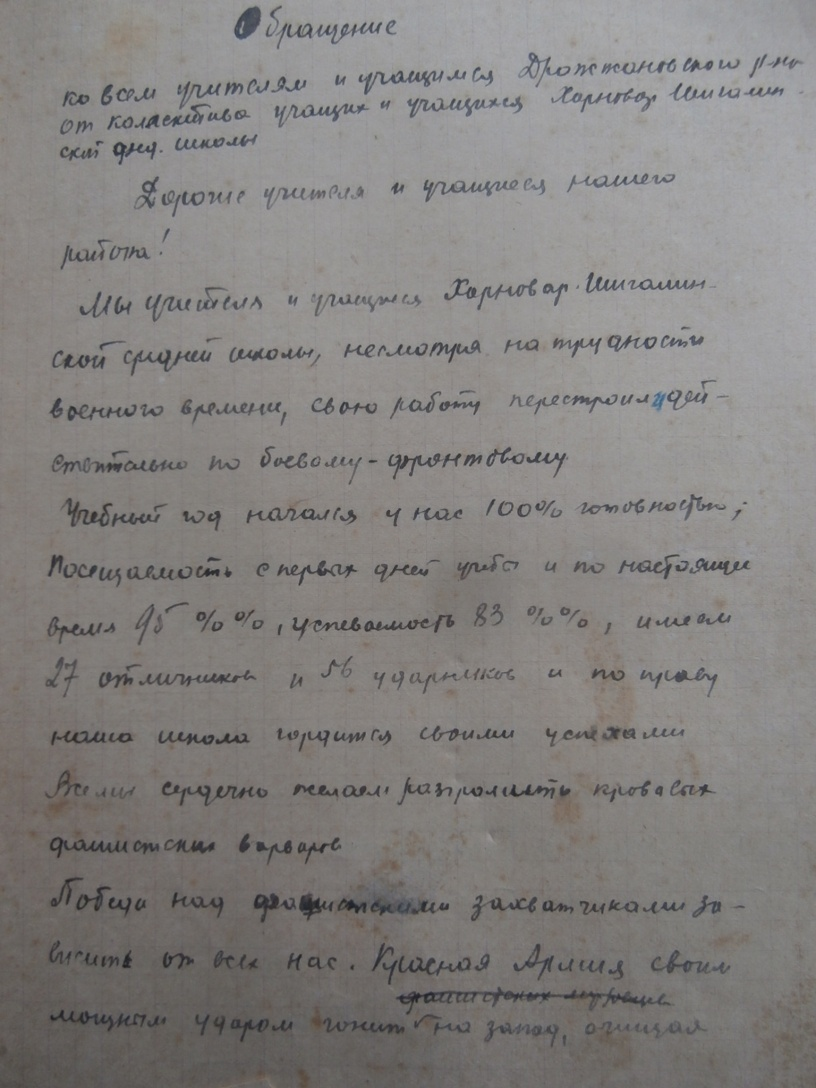 Обращение
ко всем учителям и учащимся Дрожжановского р-на
от коллектива учащих и учащихся Харновар-Шигалин-
ской сред. школы
Дорогие учителя и учащиеся нашего
района!
Мы учителя и учащиеся Харновар-Шигалин-
ской средней школы, несмотря на трудности
военного времени, свою работу перестроили дей-
ствительно по боевому-фронтовому
Учебный год начался у нас 100% готовностью;
Посещаемость с первых дней учебы и по настоящее
время 95 %%, успеваемость 83 %%, имеем
27 отличников и 56 ударников и по праву
наша школа гордится своими успехами
Все мы сердечно желаем разгромить кровавых
фашистских варваров
Победа над фашистскими захватчиками за-
висит от всех нас. Красная Армия своим
фашистских мерзавцев
мощным ударом гонит на запад, очищая